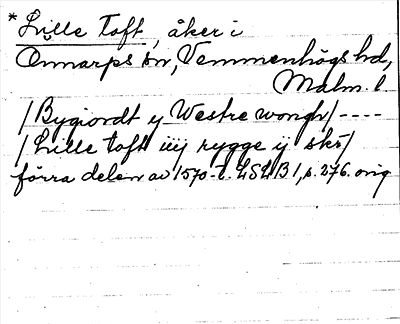 * Lille Toft, åker i
Onnarps sn, Vemmenhögs hd,
Malm. l.
/Bygiordt y Westre wongh/ ----
/Lille toft iiij rygge ij sk /
förra delen av 1570-t. LSLB 1, p. 276. orig